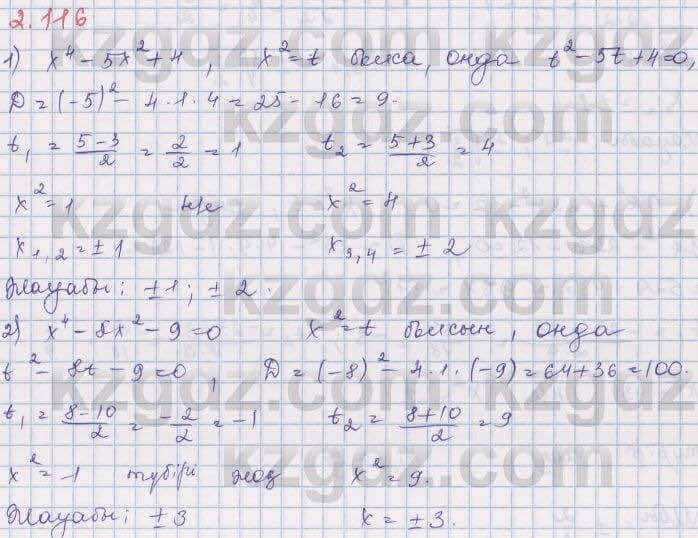 2.116
1) x⁴ - 5x² + 4, x² = t болса, онда t² - 5t + 4 = 0,
D = (-5)² - 4·1·4 = 25 - 16 = 9.
t₁ = (5-3)/2 = 2/2 = 1 t₂ = (5+3)/2 = 4
x² = 1 не x² = 4
x₁,₂ = ±1 x₃,₄ = ±2
Жауабы: ±1; ±2.
2) x⁴ - 8x² - 9 = 0 x² = t болсын, онда
t² - 8t - 9 = 0, D = (-8)² - 4·1·(-9) = 64 + 36 = 100.
t₁ = (8-10)/2 = -2/2 = -1 t₂ = (8+10)/2 = 9
x² = -1 түбірі жоқ x² = 9.
Жауабы: ±3 x = ±3.
kzgdz.com